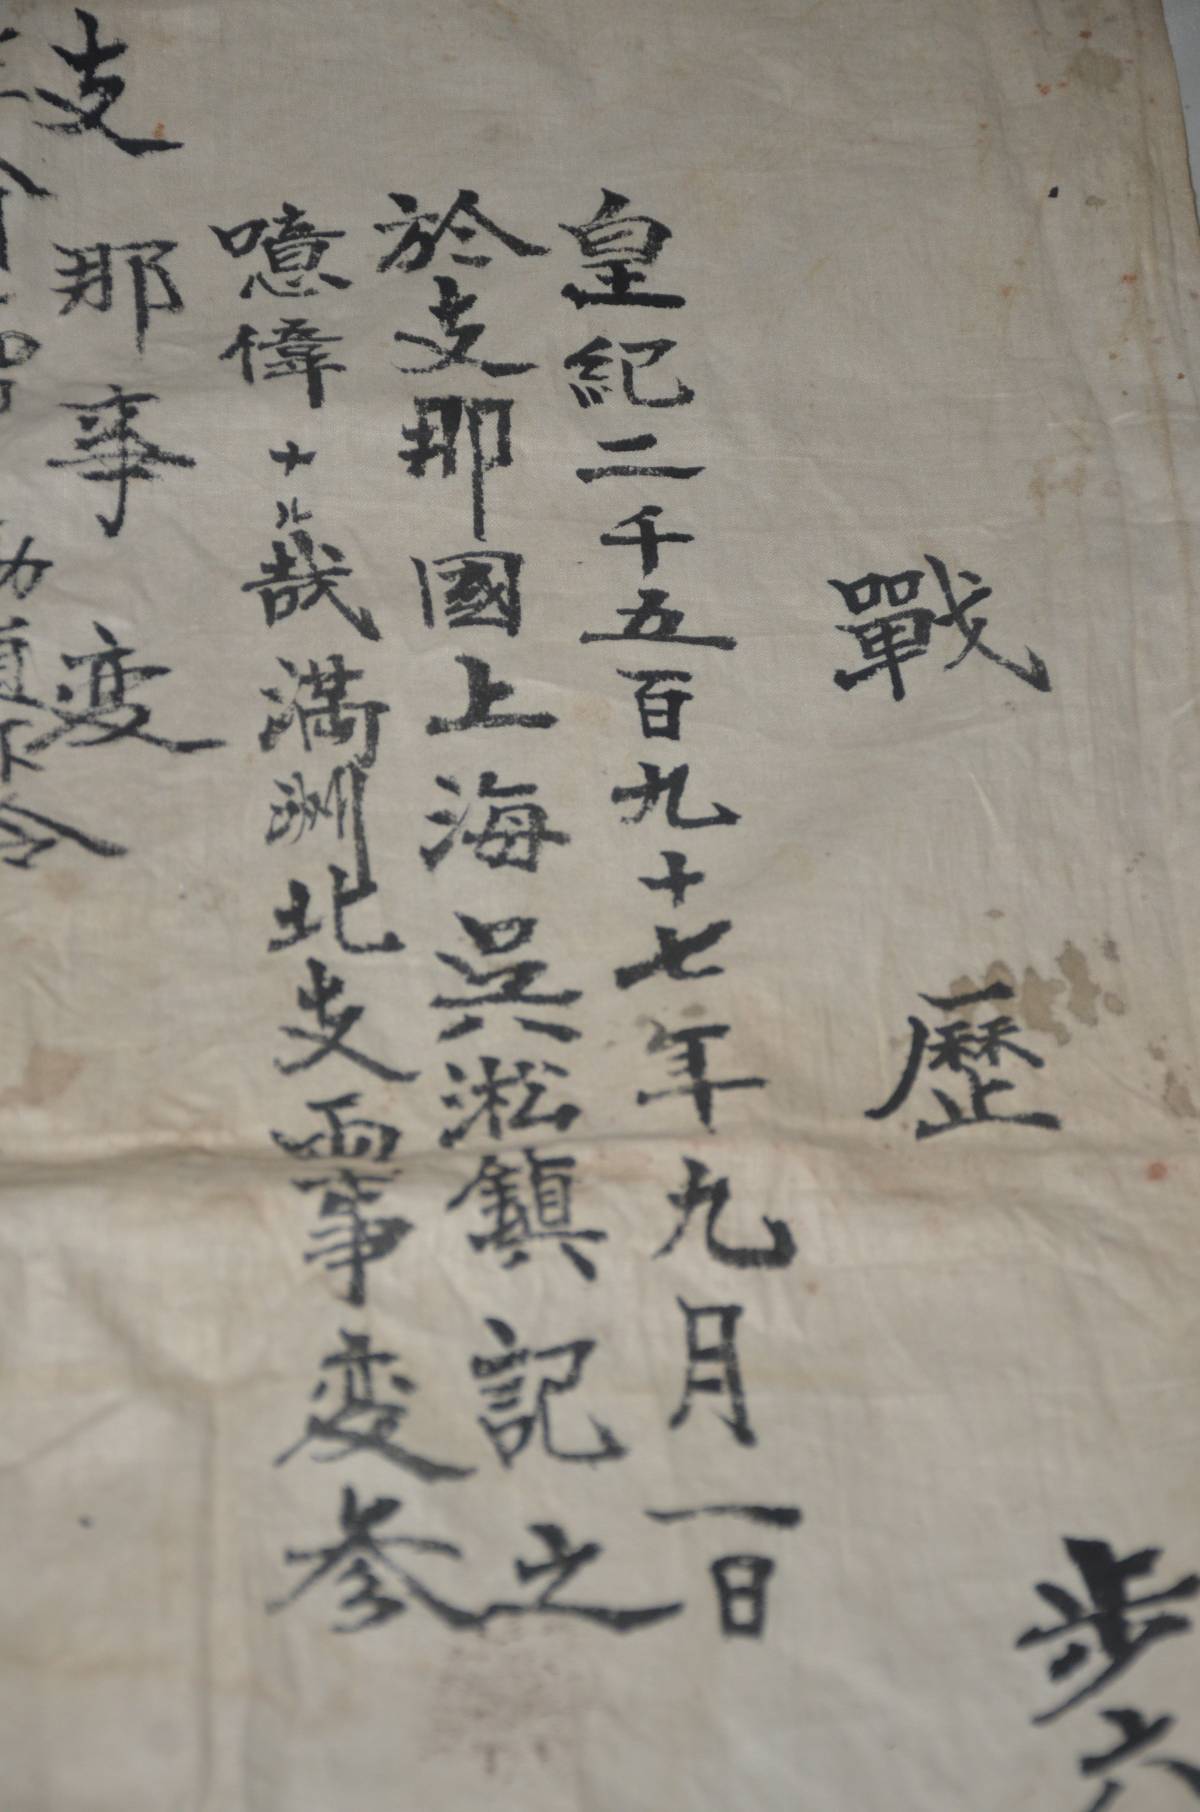 步六
戰歷
皇紀二千五百九十七年九月一日
於支那國上海吳淞鎮記之
噫偉ナル哉満洲北支両事変参
支那事変
動員下令